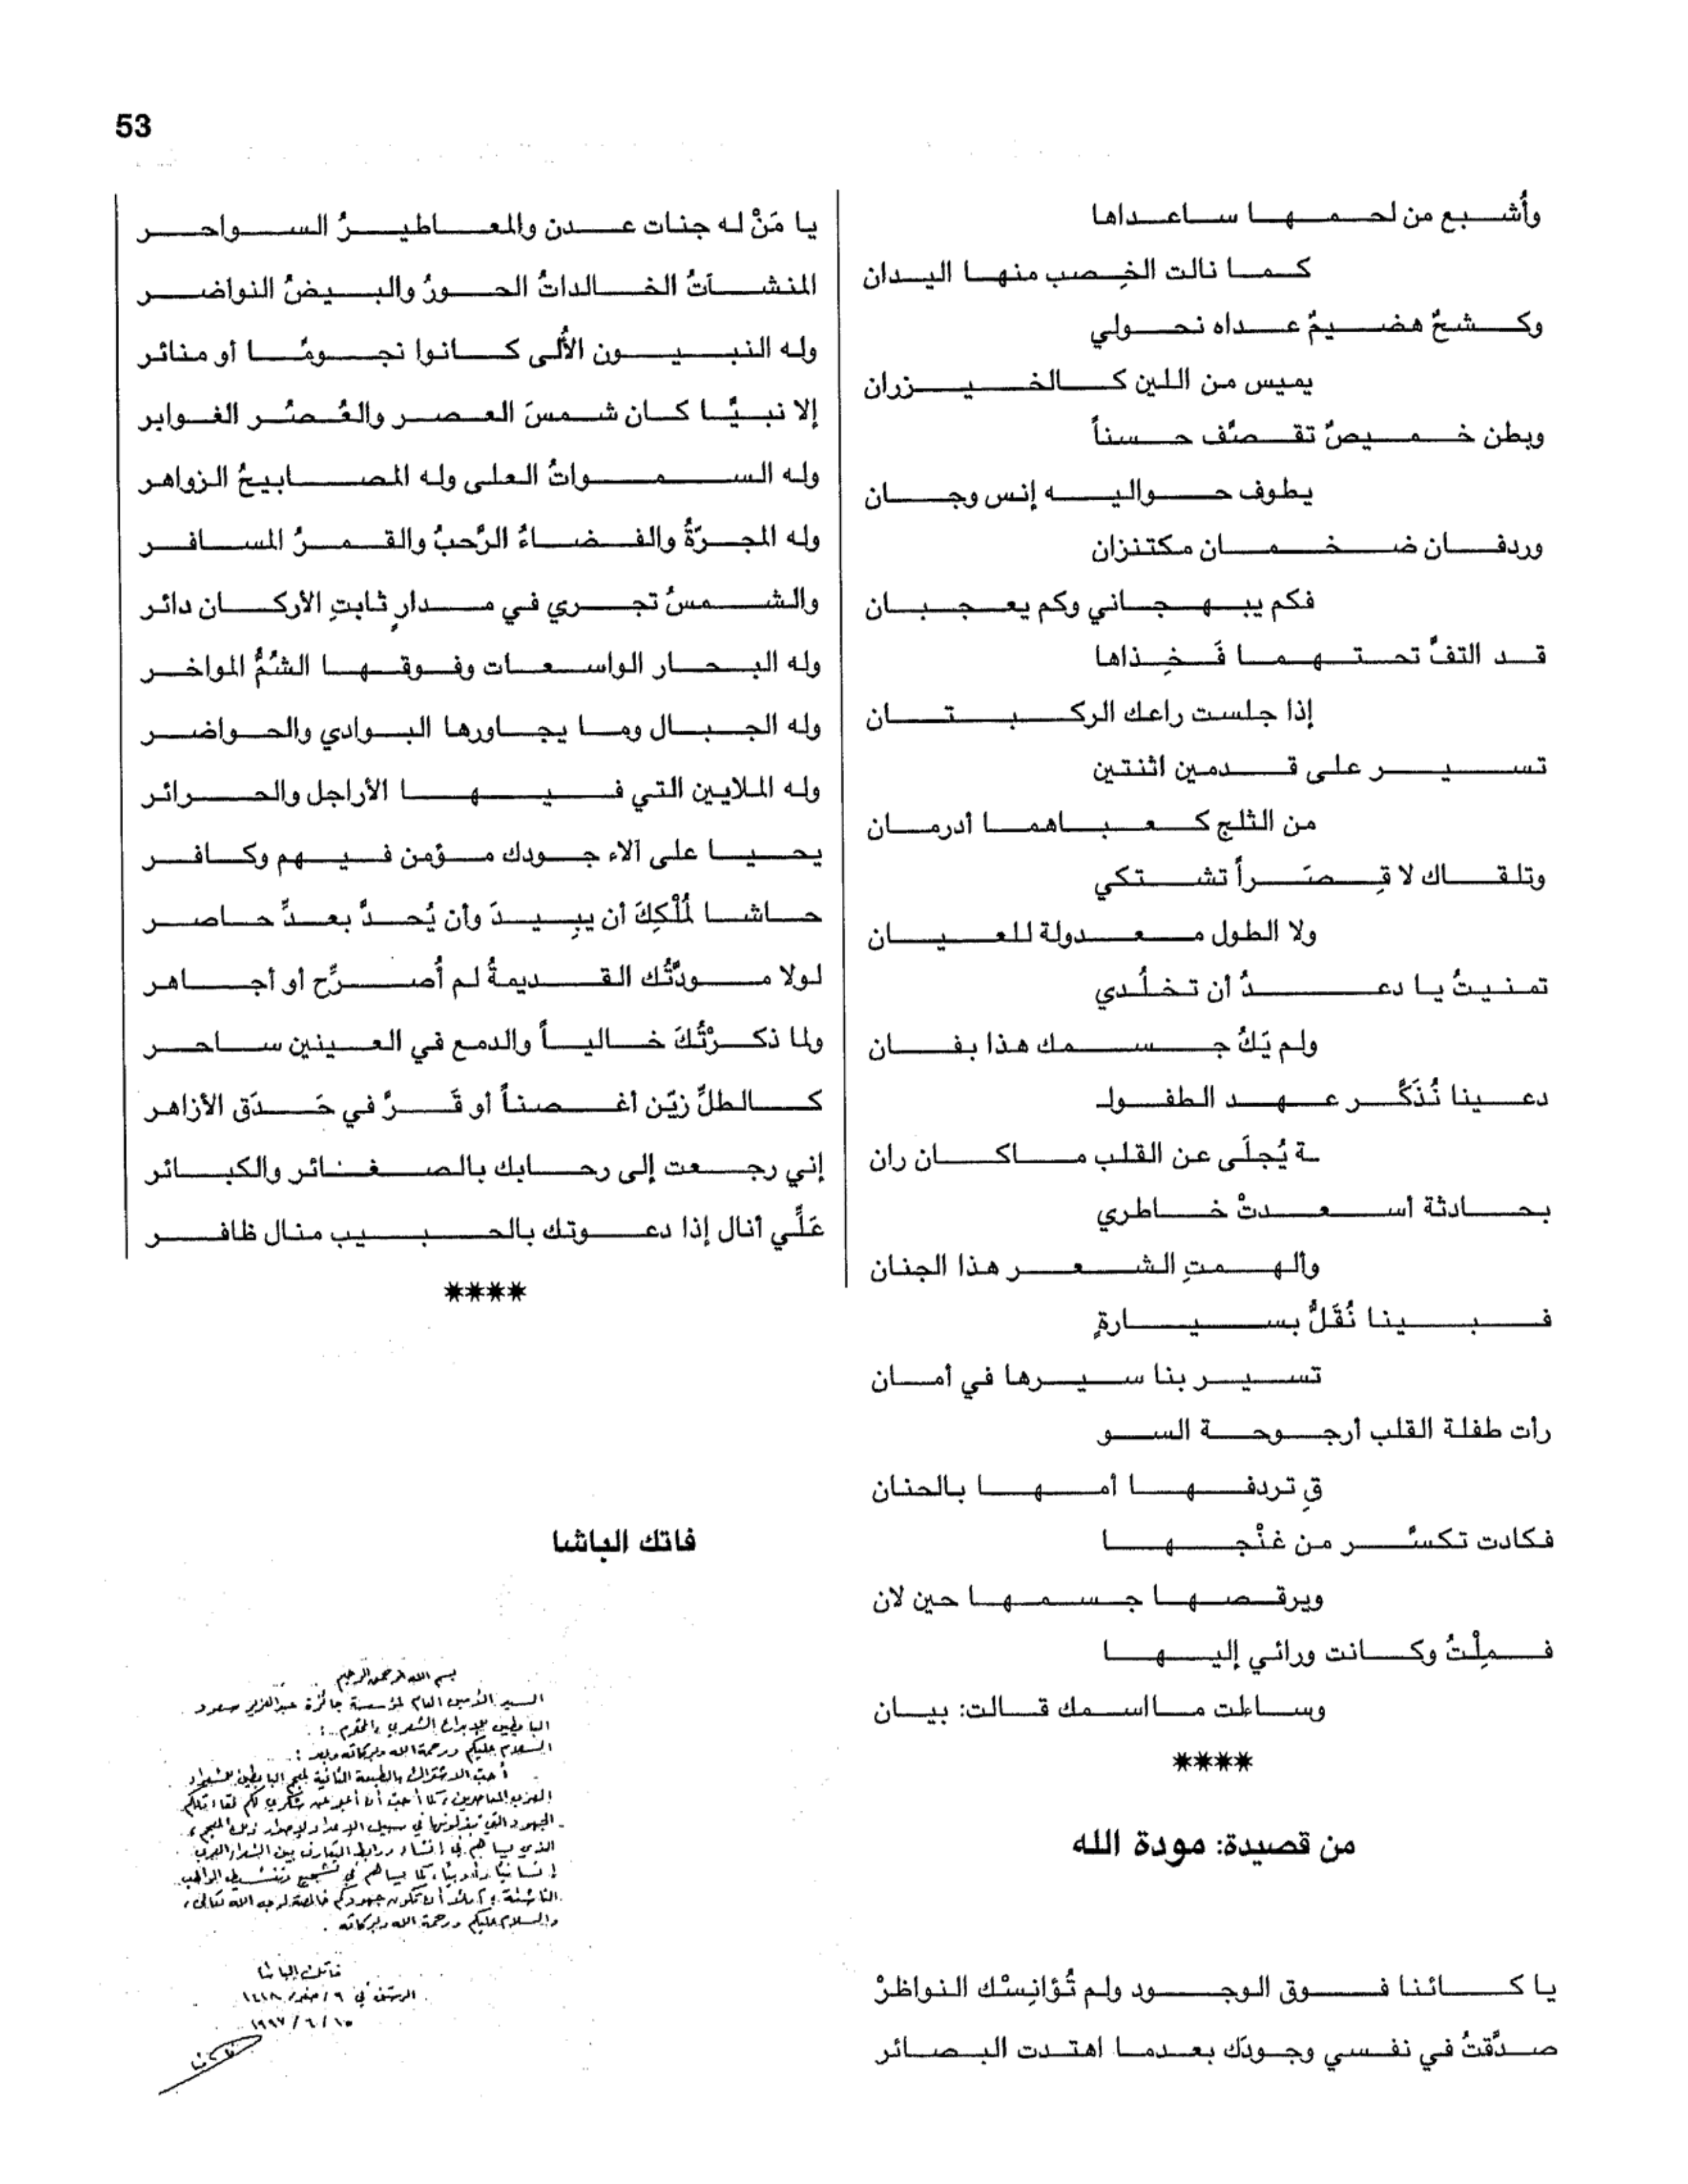 53
وأُشبع من لحمها ساعداها
كما نالت الخِصب منها اليدان
وكشحٌ هضيمٌ عداه نحولي
يميس من اللين كالخيزران
وبطن خميصٌ تقصّف حسناً
يطوف حواليه إنس وجان
وردفان ضخمان مكتنزان
فكم يبهجاني وكم يعجبان
قد التفَّ تحتهما فَخِذاها
إذا جلست راعك الركبتان
تسير على قدمين اثنتين
من الثلج كعباهما أدرمان
وتلقاك لا قِصَراً تشتكي
ولا الطول معدولة للعيان
تمنيتُ يا دعدُ أن تخلُدي
ولم يَكُ جسمك هذا بفان
دعينا نُذَكَّر عهد الطفولـ
ـة يُجلَى عن القلب ماكان ران
بحادثة أسعدتْ خاطري
وألهمتِ الشعر هذا الجنان
فبينا نُقَلُّ بسيارةٍ
تسير بنا سيرها في أمان
رأت طفلة القلب أرجوحة السو
قِ تردفها أمها بالحنان
فكادت تكسَّر من غنْجها
ويرقصها جسمها حين لان
فمِلْتُ وكانت ورائي إليها
وساءلت مااسمك قالت: بيان
****
من قصيدة: مودة الله
يا كائنا فوق الوجود ولم تُؤانِسْك النواظرْ
صدَّقتُ في نفسي وجودَك بعدما اهتدت البصائر
يا مَنْ له جنات عدن والمعاطيرُ السواحر
المنشآتُ الخالداتُ الحورُ والبيضُ النواضر
وله النبيون الأُلى كانوا نجومًا أو منائر
إلا نبيًّا كان شمسَ العصر والعُصُر الغوابر
وله السمواتُ العلى وله المصابيحُ الزواهر
وله المجرّةُ والفضاءُ الرَّحبُ والقمرُ المسافر
والشمسُ تجري في مدارٍ ثابتِ الأركان دائر
وله البحار الواسعات وفوقها الشُمُّ المواخر
وله الجبال وما يجاورها البوادي والحواضر
وله الملايين التي فيها الأراجل والحرائر
يحيا على آلاء جودك مؤمن فيهم وكافر
حاشا لمُلْكِكَ أن يبِيدَ وأن يُحدَّ بعدِّ حاصر
لولا مودَّتُك القديمةُ لم أُصرِّح أو أجاهر
ولما ذكرْتُكَ خالياً والدمع في العينين ساحر
كالطلِّ زيّن أغصناً أو قَرَّ في حَدَق الأزاهر
إني رجعت إلى رحابك بالصغائر والكبائر
عَلِّي أنال إذا دعوتك بالحبيب منال ظافر
****
فاتك الباشا
بسم الله الرحمن الرحيم
السيد الأمين العام لمؤسسة جائزة عبدالعزيز سعود
البابطين للإبداع الشعري المحترم:
السلام عليكم ورحمة الله وبركاته وبعد:
أحب الاشتراك بالطبعة الثانية لمعجم البابطين للشعراء
العرب المعاصرين، كما أحب أن أعبر عن شكري لكم لقاء تلكم
الجهود التي تبذلونها في سبيل الإعداد لإصدار ذلك المعجم،
الذي يساهم في إنشاء روابط التعارف بين الشعراء العرب
إنسانيًا وأدبيًا، كما يساهم في تشجيع وتنشيط المواهب
الناشئة، أن تكون جهودكم خالصة لوجه الله تعالى،
والسلام عليكم ورحمة الله وبركاته.
فاتك الباشا
الرستن في ٩/صفر/١٤١٨
١٥/٦/١٩٩٧